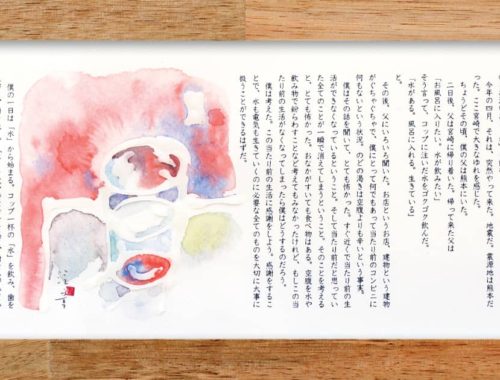 今年の四月、それは、突然やって来た。地震だ。震源地は熊本だ
った。ここ宮崎も、大きな揺れを感じた。
ちょうどその頃、僕の父は熊本にいた。
二日後、父は宮崎に帰り着いた。帰って来た父は
「お風呂に入りたい。水が飲みたい」
そう言って、コップに注いだ水をゴクゴク飲んだ。
「水がある。風呂に入れる。生きている」
と。
その後、父にいろいろ聞いた。お店というお店、建物という建物
がぐちゃぐちゃで、僕にとって何でもあって当たり前のコンビニに
何もないという状況。のどの渇きは空腹よりも辛いという事実。
僕はその話を聞いて、とても怖かった。すぐ近くで当たり前の生
活ができなくなっているということ。そして当たり前だと思ってい
た全てのことが一瞬で消えてしまうということ。そのことを考える
と、とても怖かった。おなかがすいても食べ物はある。空腹を水や
飲み物で紛らわすことなど考えてもみなかったけれど、もしこの当
たり前の生活がなくなってしまったら僕はどうするのだろう。
僕は考えた。この当たり前の生活に感謝をしよう。感謝をするこ
とで、水も電気も生きていくのに必要な全てのものを大切に大事に
扱うことができるはずだ。
僕の一日は「水」から始まる。コップ一杯の「水」を飲み、歯を